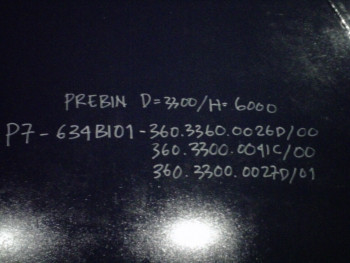 PREBIN D=3300/H=6000
P7-634BI01-360.3360.0026D/00
360.3300.0041C/00
360.3300.0027D/01